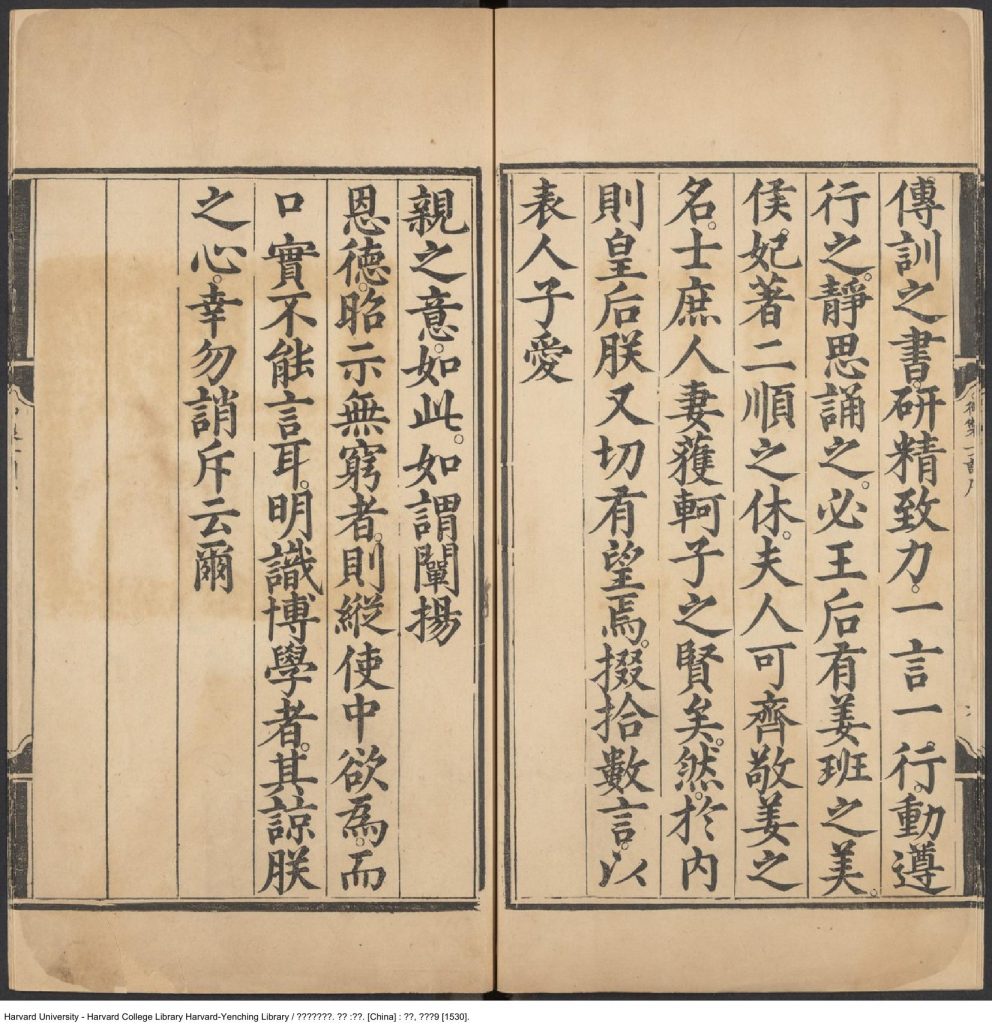 傳訓之書。研精致力。一言一行。動遵
行之。靜思誦之。必王后有姜班之美。
侯妃著二順之休。夫人可齊敬姜之
名。士庶人妻蓷軻子之賢矣。然於内
則皇后朕又切有望焉。掇拾數言。以
表人子愛
親之意。如此。如謂闡揚
恩德。昭示無窮者。則縱使中欲為。而
口實不能言耳。明識博學者。其諒朕
之心。幸勿誚斥云爾
Harvard University - Harvard College Library Harvard-Yenching Library / ???????. ?? :??. [China] : ??, ???9 [1530].